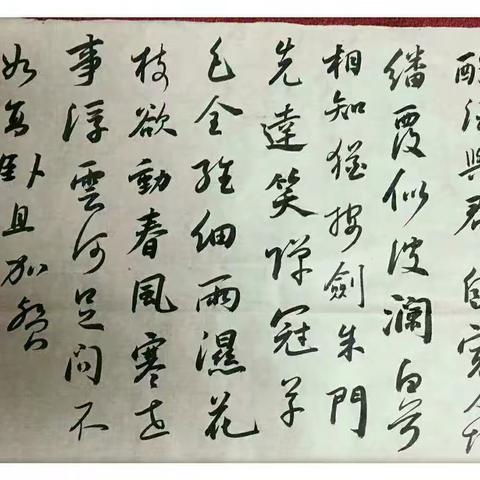 酌酒與君自寬人情
繙覆似波瀾白首
相知猶按劍朱門
先達笑彈冠草
色全經細雨濕花
枝欲動春風寒世
事浮雲何足問不
如高臥且加餐